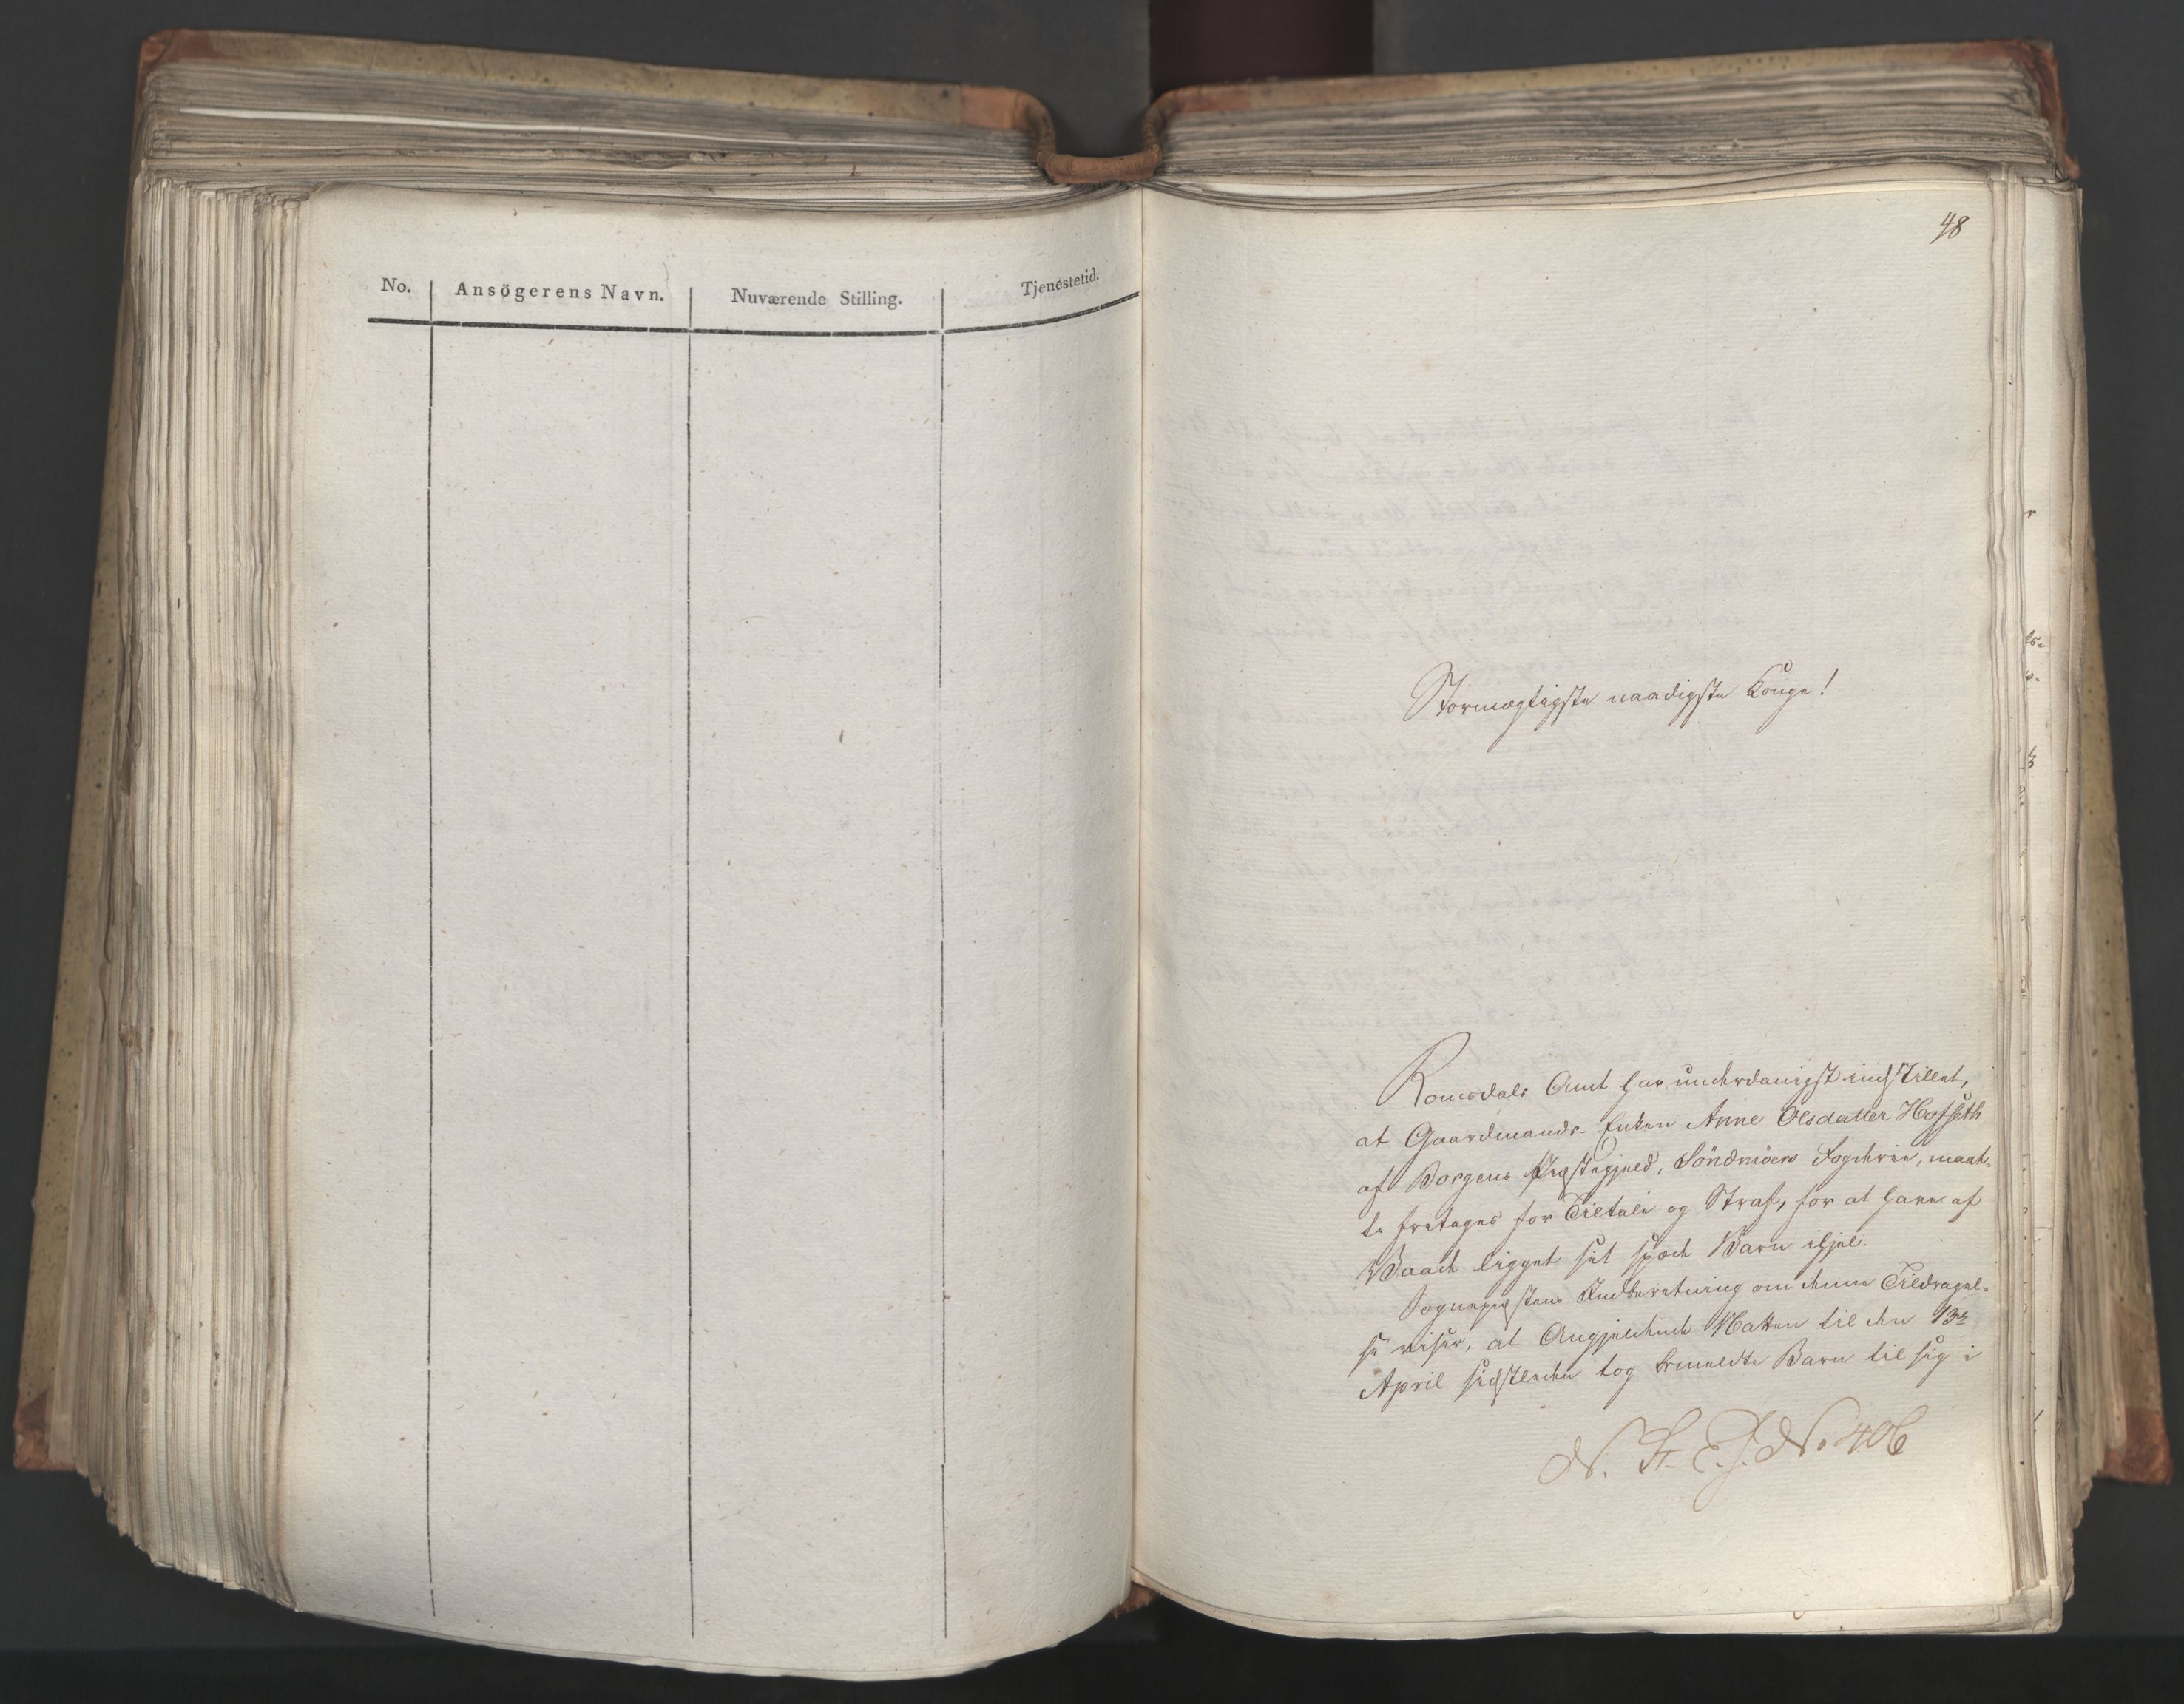 No. Ansögerens Navn. Nuværende Stilling. Tjenestetid.
48
Stormægtigste naadigste Konge!
Romsdals Amt har underdanigst indstillet,
at Gaardmands-Enken Anne Olsdatter Hofseth
af Borgens Præstegjeld, Söndmöers Fogderie, maat-
te fritages for Tiltale og Straf, for at have af
Vaade ligget sit spæde Barn ihjel.
Sognepræstens Indberetning om denne Tildragel-
se viser, at Angjeldende Natten til den 13de
April sidstleden tog bemeldte Barn til sig i
N. H. E. J. No 406